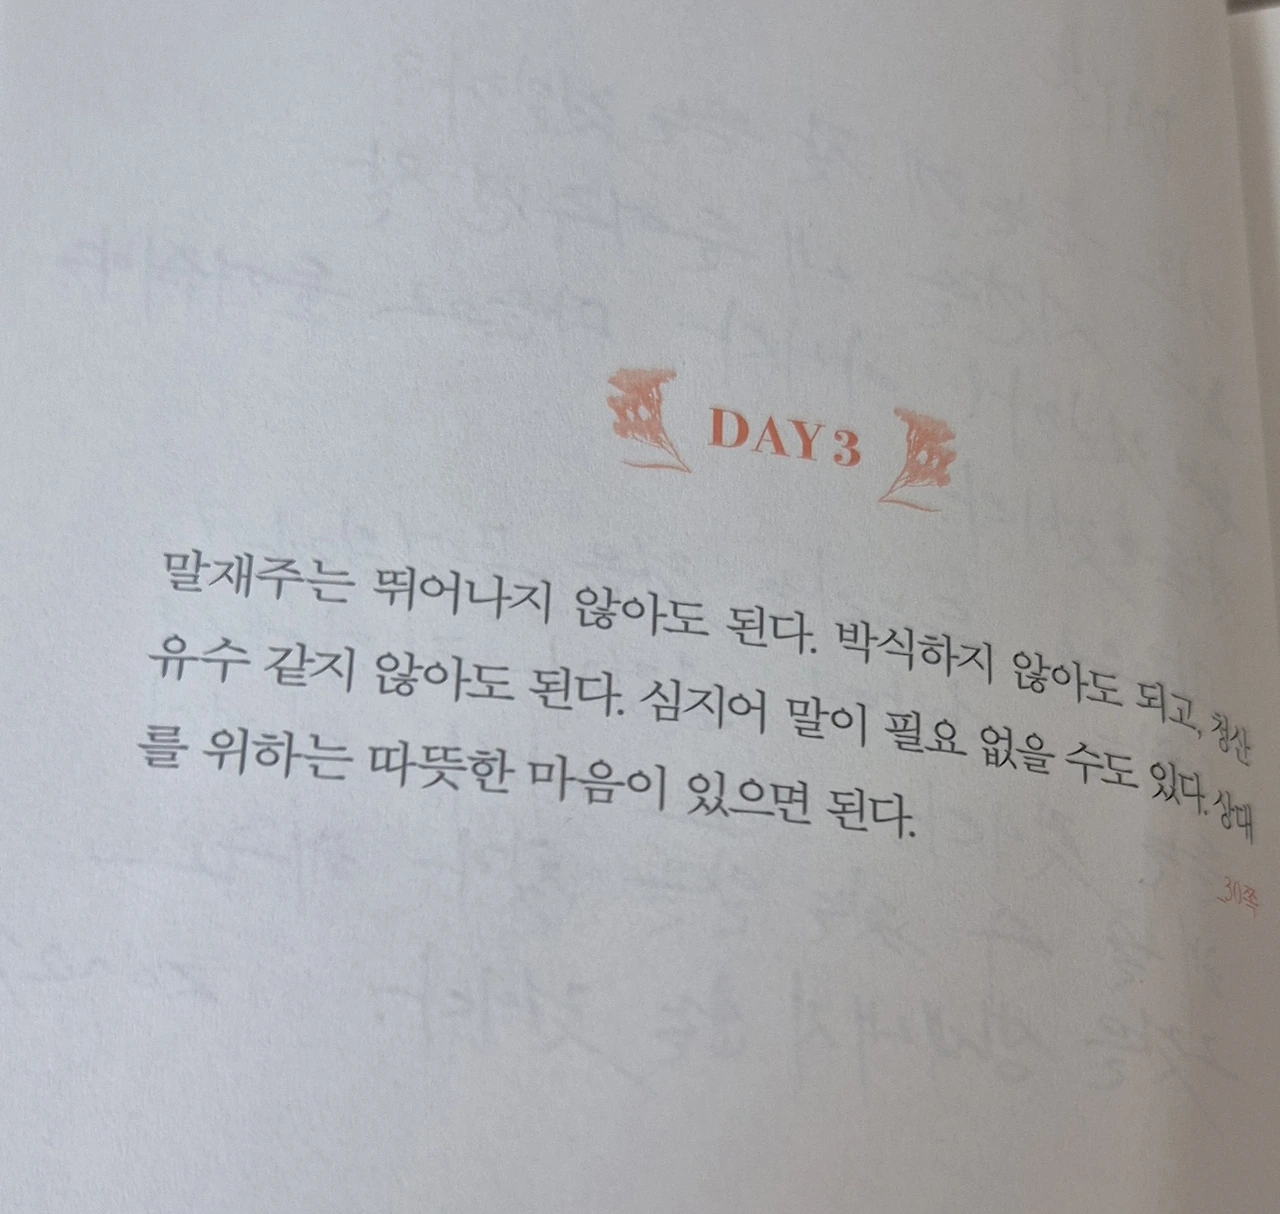 DAY 3
말재주는 뛰어나지 않아도 된다. 박식하지 않아도 되고, 청산
유수 같지 않아도 된다. 심지어 말이 필요 없을 수도 있다. 상대
를 위하는 따뜻한 마음이 있으면 된다.
30쪽